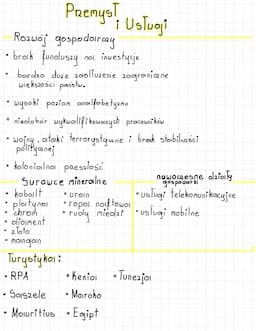 Przemysł
i Usługi
Rozwój gospodarczy
• brak funduszy na inwestycje
• bardzo duże zadłużenie zagraniczne
większości państw.
• wysoki poziom analfabetyzmu
• niedobór wykwalifikowanych pracowników
• wojny, ataki terrorystyczne i brak stabilności
politycznej
• kolonialna przeszłość
Surowce mineralne
• kobalt
• platyna
• chrom
• diament
• złoto
• mangan
• uran
• ropa naftowa
• rudy miedzi
nowoczesne działy
gospodarki
• usługi telekomunikacyjne
• usługi mobilne
Turystyka:
• RPA
• Seiszele
• Mauritius
• Kenia
• Maroko
• Egipt
• Tunezja